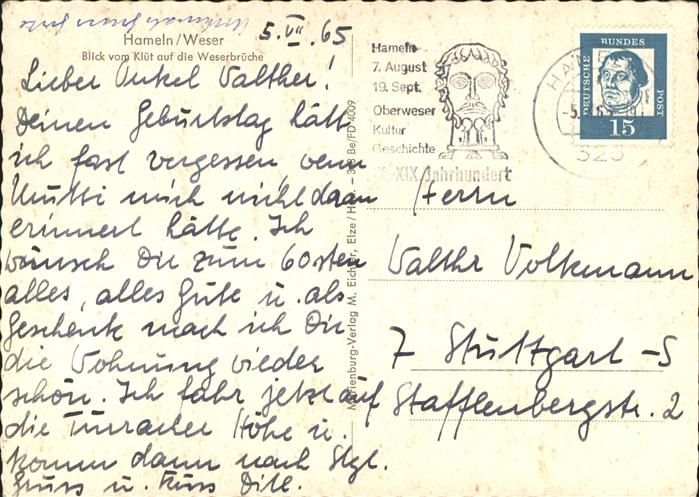 5. VII. 65
Hameln/Weser
Blick vom Klüt auf die Weserbrüche
Lieber Onkel Walther!
Deinen Geburtstag hätt
ich fast vergessen, wenn
Mutti mich nicht daran
erinnert hätte. Ich
wünsch Dir zum 60sten
alles, alles Gute u. als
Geschenk mach ich Dir
die Wohnung wieder
schön. Ich fahr jetzt auf
die Turracher Höhe u.
komm dann nach Stgt.
Gruss u. Kuss Dill.
Marienburg-Verlag M. Eichler, Elze/Han. Be/FD 4009
Hameln
7. August
19. Sept.
Oberweser
Kultur
Geschichte
XIX. Jahrhundert
DEUTSCHE
BUNDES
POST
15
Herrn
Walthr Volkmann
7 Stuttgart-S
Stafflenbergstr. 2